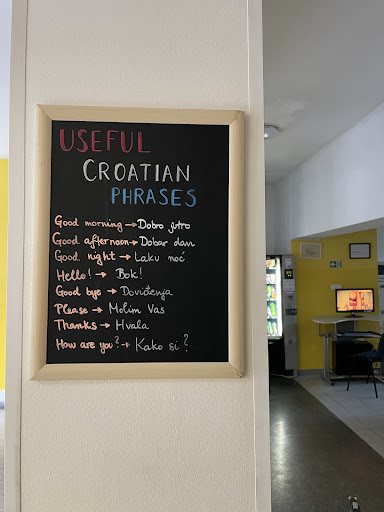 USEFUL
CROATIAN
PHRASES
Good morning → Dobro jutro
Good afternoon → Dobar dan
Good night → Laku noć
Hello! → Bok!
Good bye → Doviđenja
Please → Molim Vas
Thanks → Hvala
How are you? → Kako si?